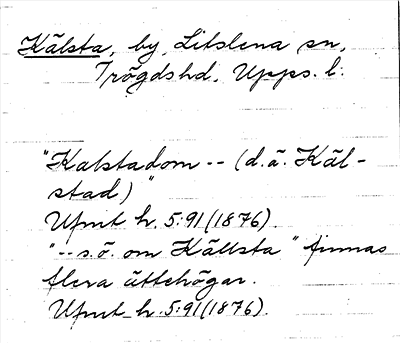 Kälsta, by, Litslena sn,
Trögdshd, Upps. l.
"Kalstadom -- (d.ä. Käl-
stad)"
Ufmt h. 5:91 (1876).
"-- s.ö. om Källsta" finnas
flera ättehögar.
Ufmt h. 5:91 (1876).